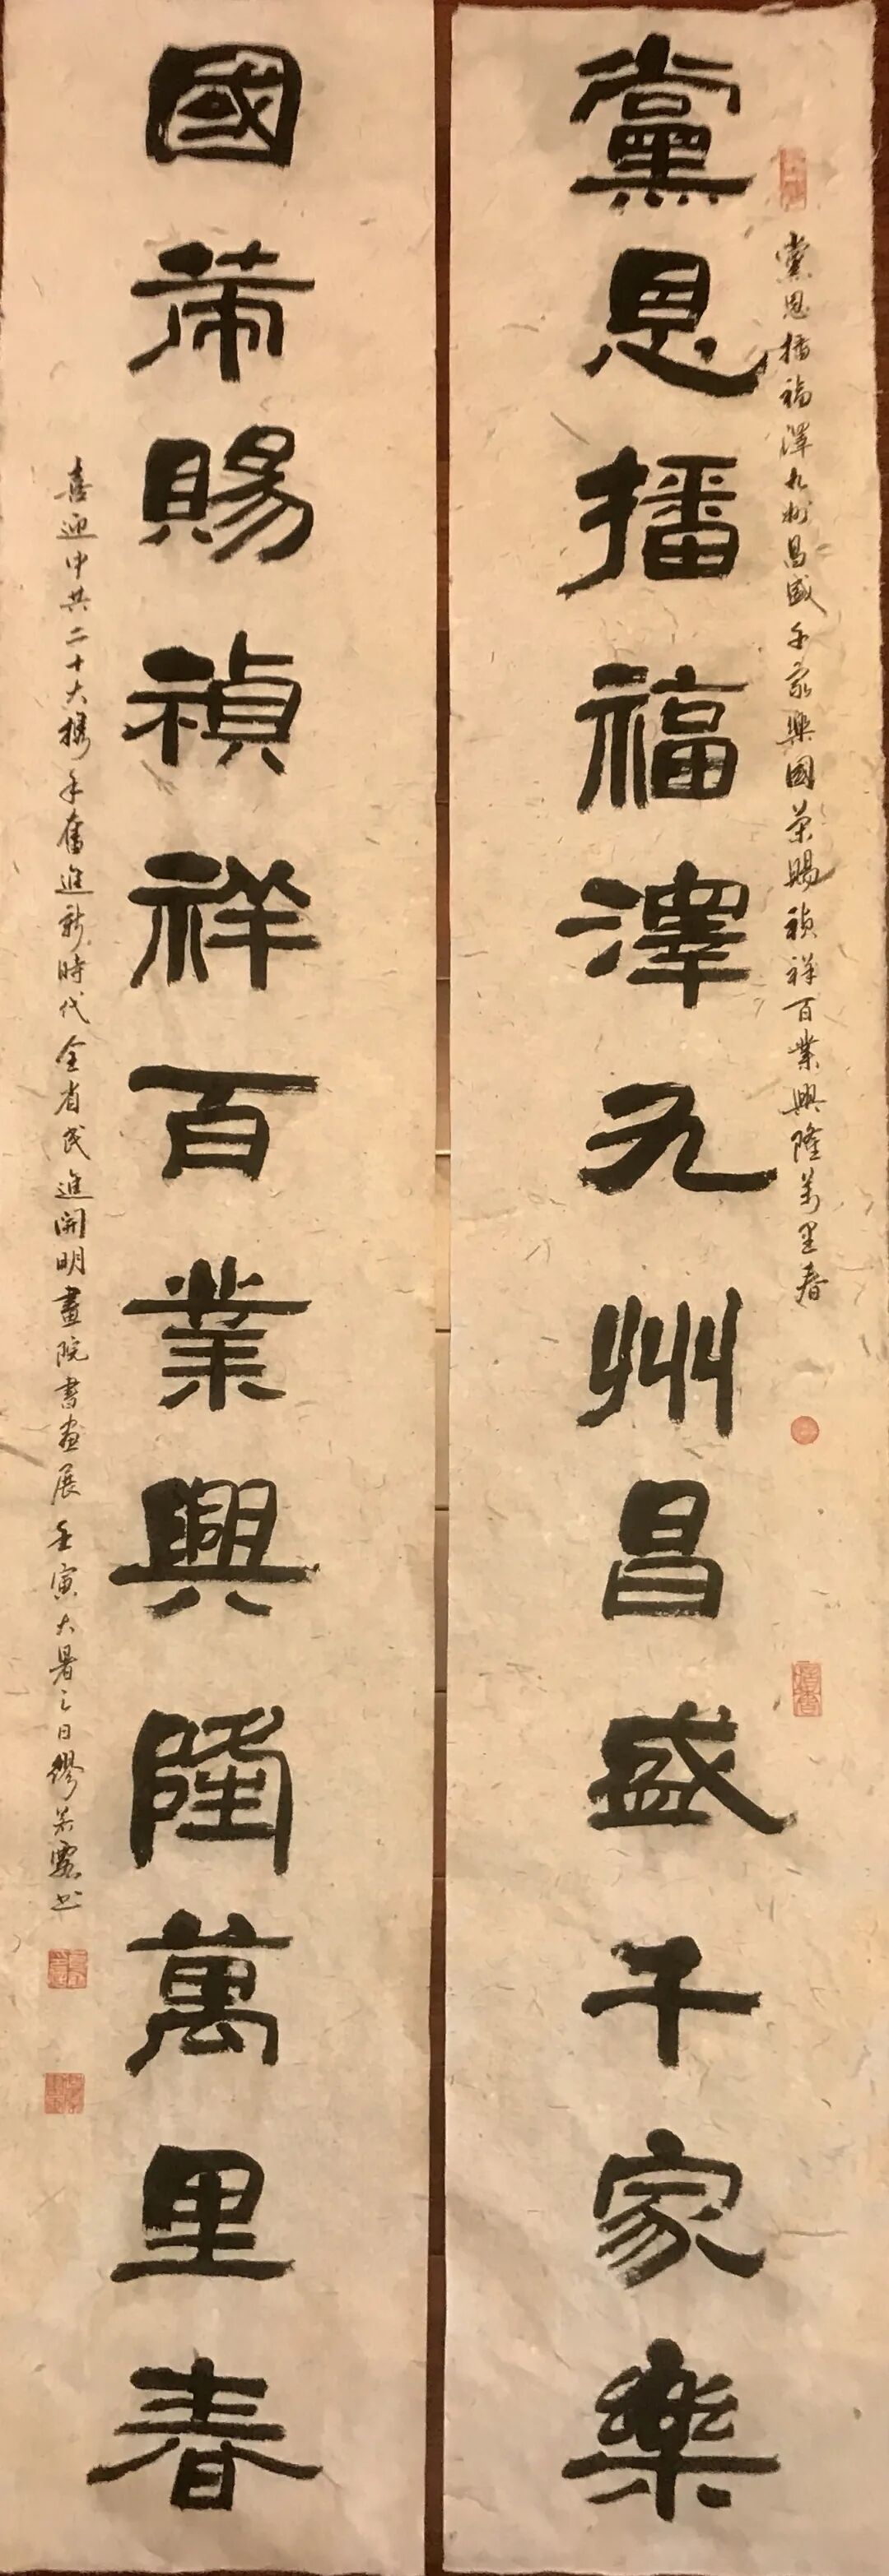 黨恩播福澤九州昌盛千家樂
黨恩播福澤九州昌盛千家樂國荣賜禎祥百業興隆萬里春
國荣賜禎祥百業興隆萬里春
喜迎中共二十大携手奮進新時代全省民進開明畫院書画展壬寅大暑之日繆书